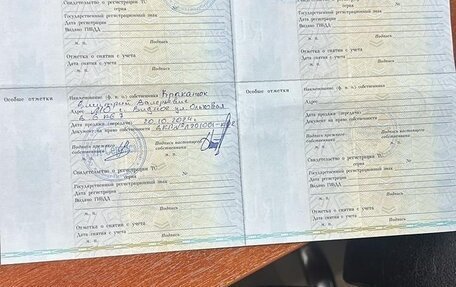 Свидетельство о регистрации ТС
серия
Государственный регистрационный знак
Выдано ГИБДД
М. П. Подпись
Отметка о снятии с учета
Дата снятия с учета
М. П. Подпись
серия
Государственный регистрационный
Дата регистрации
Выдано ГИБДД
М. П. Подпись
Отметка о снятии с учета
Дата снятия с учета
М. П. Подпись
Особые отметки
Наименование (ф. и. о.) собственника
Дмитрий Валерьевич
Адрес МО, г. Видное ул. Ольховая
Дата продажи (передачи) 20.10.2024
Документ на право собственности
Подпись прежнего собственника
Подпись настоящего собственника
М. П. М. П.
Свидетельство о регистрации ТС
серия
Государственный регистрационный знак
Дата регистрации
Выдано ГИБДД
М. П. Подпись
Отметка о снятии с учета
Дата снятия с учета
М. П. Подпись
Особые отметки
Наименование (ф. и. о.) собственника
Адрес
Дата продажи (передачи)
Документ на право собственности
Подпись прежнего собственника
Подпись настоящего собственника
М. П.
Свидетельство о регистрации ТС
серия
Государственный регистрационный
Дата регистрации
Выдано ГИБДД
М. П. Подпись
Отметка о снятии с учета
Дата снятия с учета
М. П. Подпись